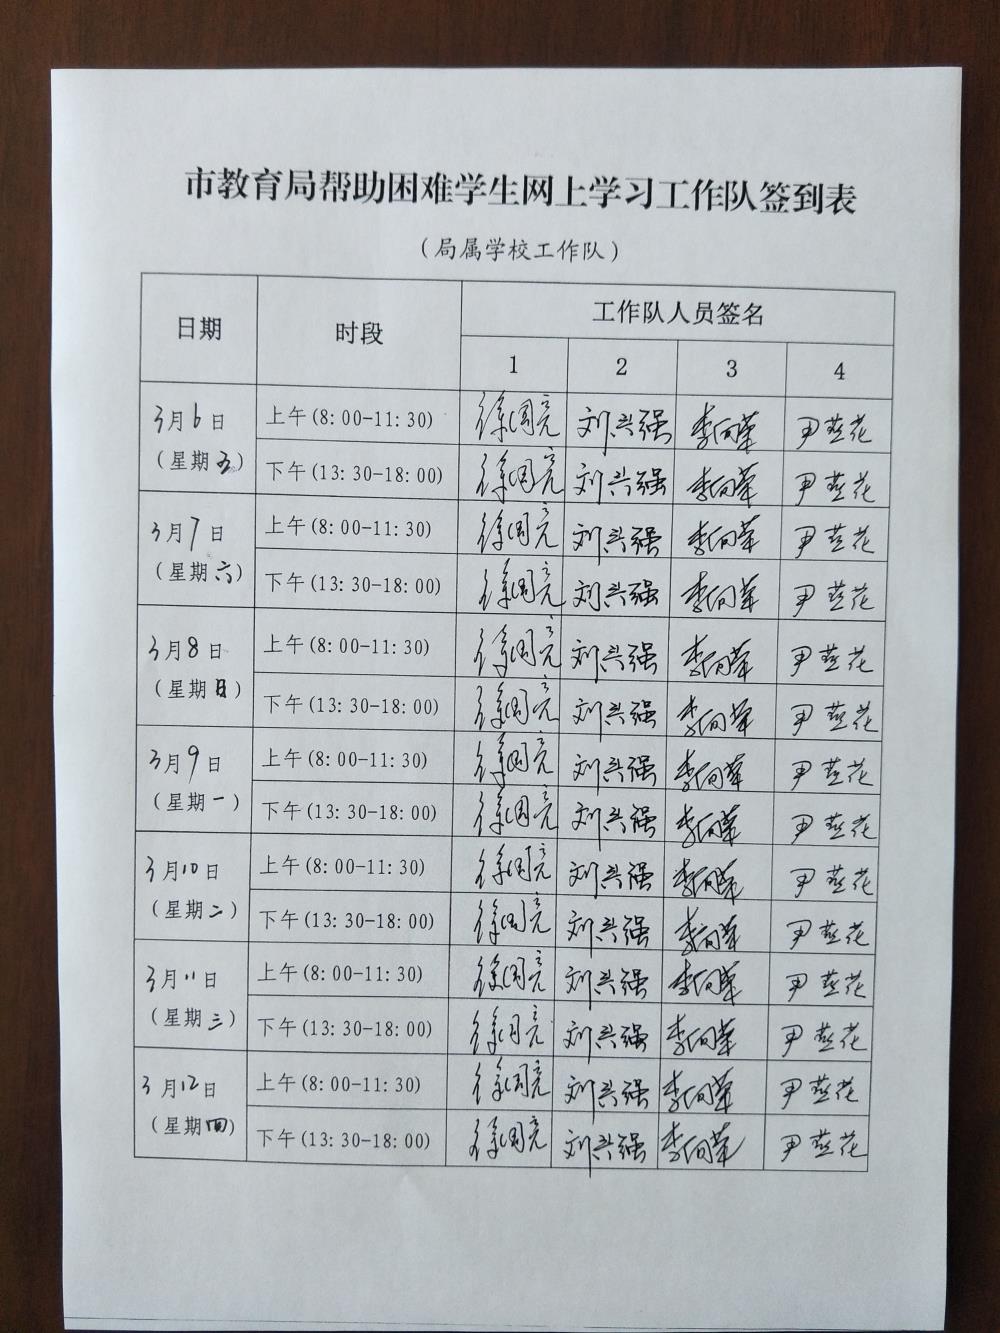 市教育局帮助困难学生网上学习工作队签到表
（局属学校工作队）
日期 时段 工作队人员签名
1 2 3 4
3月6日（星期五） 上午(8:00-11:30) 徐国亮 刘兴强 李向荣 尹燕花
下午(13:30-18:00) 徐国亮 刘兴强 李向荣 尹燕花
3月7日（星期六） 上午(8:00-11:30) 徐国亮 刘兴强 李向荣 尹燕花
下午(13:30-18:00) 徐国亮 刘兴强 李向荣 尹燕花
3月8日（星期日） 上午(8:00-11:30) 徐国亮 刘兴强 李向荣 尹燕花
下午(13:30-18:00) 徐国亮 刘兴强 李向荣 尹燕花
3月9日（星期一） 上午(8:00-11:30) 徐国亮 刘兴强 李向荣 尹燕花
下午(13:30-18:00) 徐国亮 刘兴强 李向荣 尹燕花
3月10日（星期二） 上午(8:00-11:30) 徐国亮 刘兴强 李向荣 尹燕花
下午(13:30-18:00) 徐国亮 刘兴强 李向荣 尹燕花
3月11日（星期三） 上午(8:00-11:30) 徐国亮 刘兴强 李向荣 尹燕花
下午(13:30-18:00) 徐国亮 刘兴强 李向荣 尹燕花
3月12日（星期四） 上午(8:00-11:30) 徐国亮 刘兴强 李向荣 尹燕花
下午(13:30-18:00) 徐国亮 刘兴强 李向荣 尹燕花